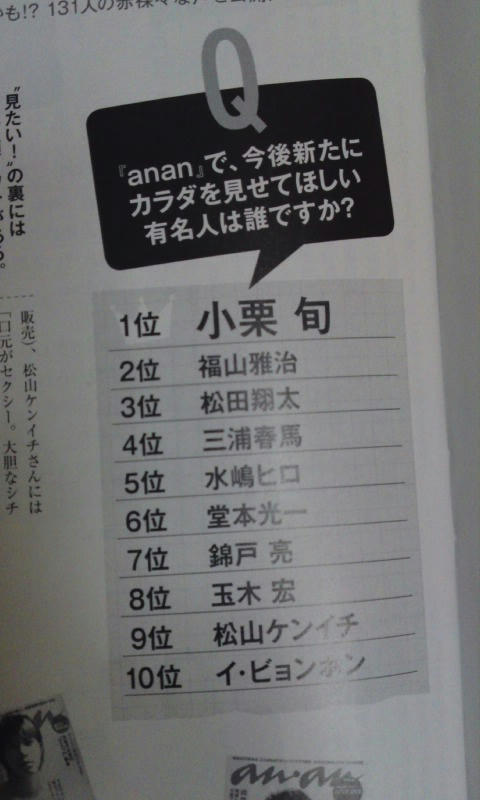 Q
『anan』で、今後新たに
カラダを見せてほしい
有名人は誰ですか?
1位 小栗 旬
2位 福山雅治
3位 松田翔太
4位 三浦春馬
5位 水嶋ヒロ
6位 堂本光一
7位 錦戸 亮
8位 玉木 宏
9位 松山ケンイチ
10位 イ・ビョンホン
"見たい!"の裏には
販売)、松山ケンイチさんには
「口元がセクシー。大胆なシチ
an・an